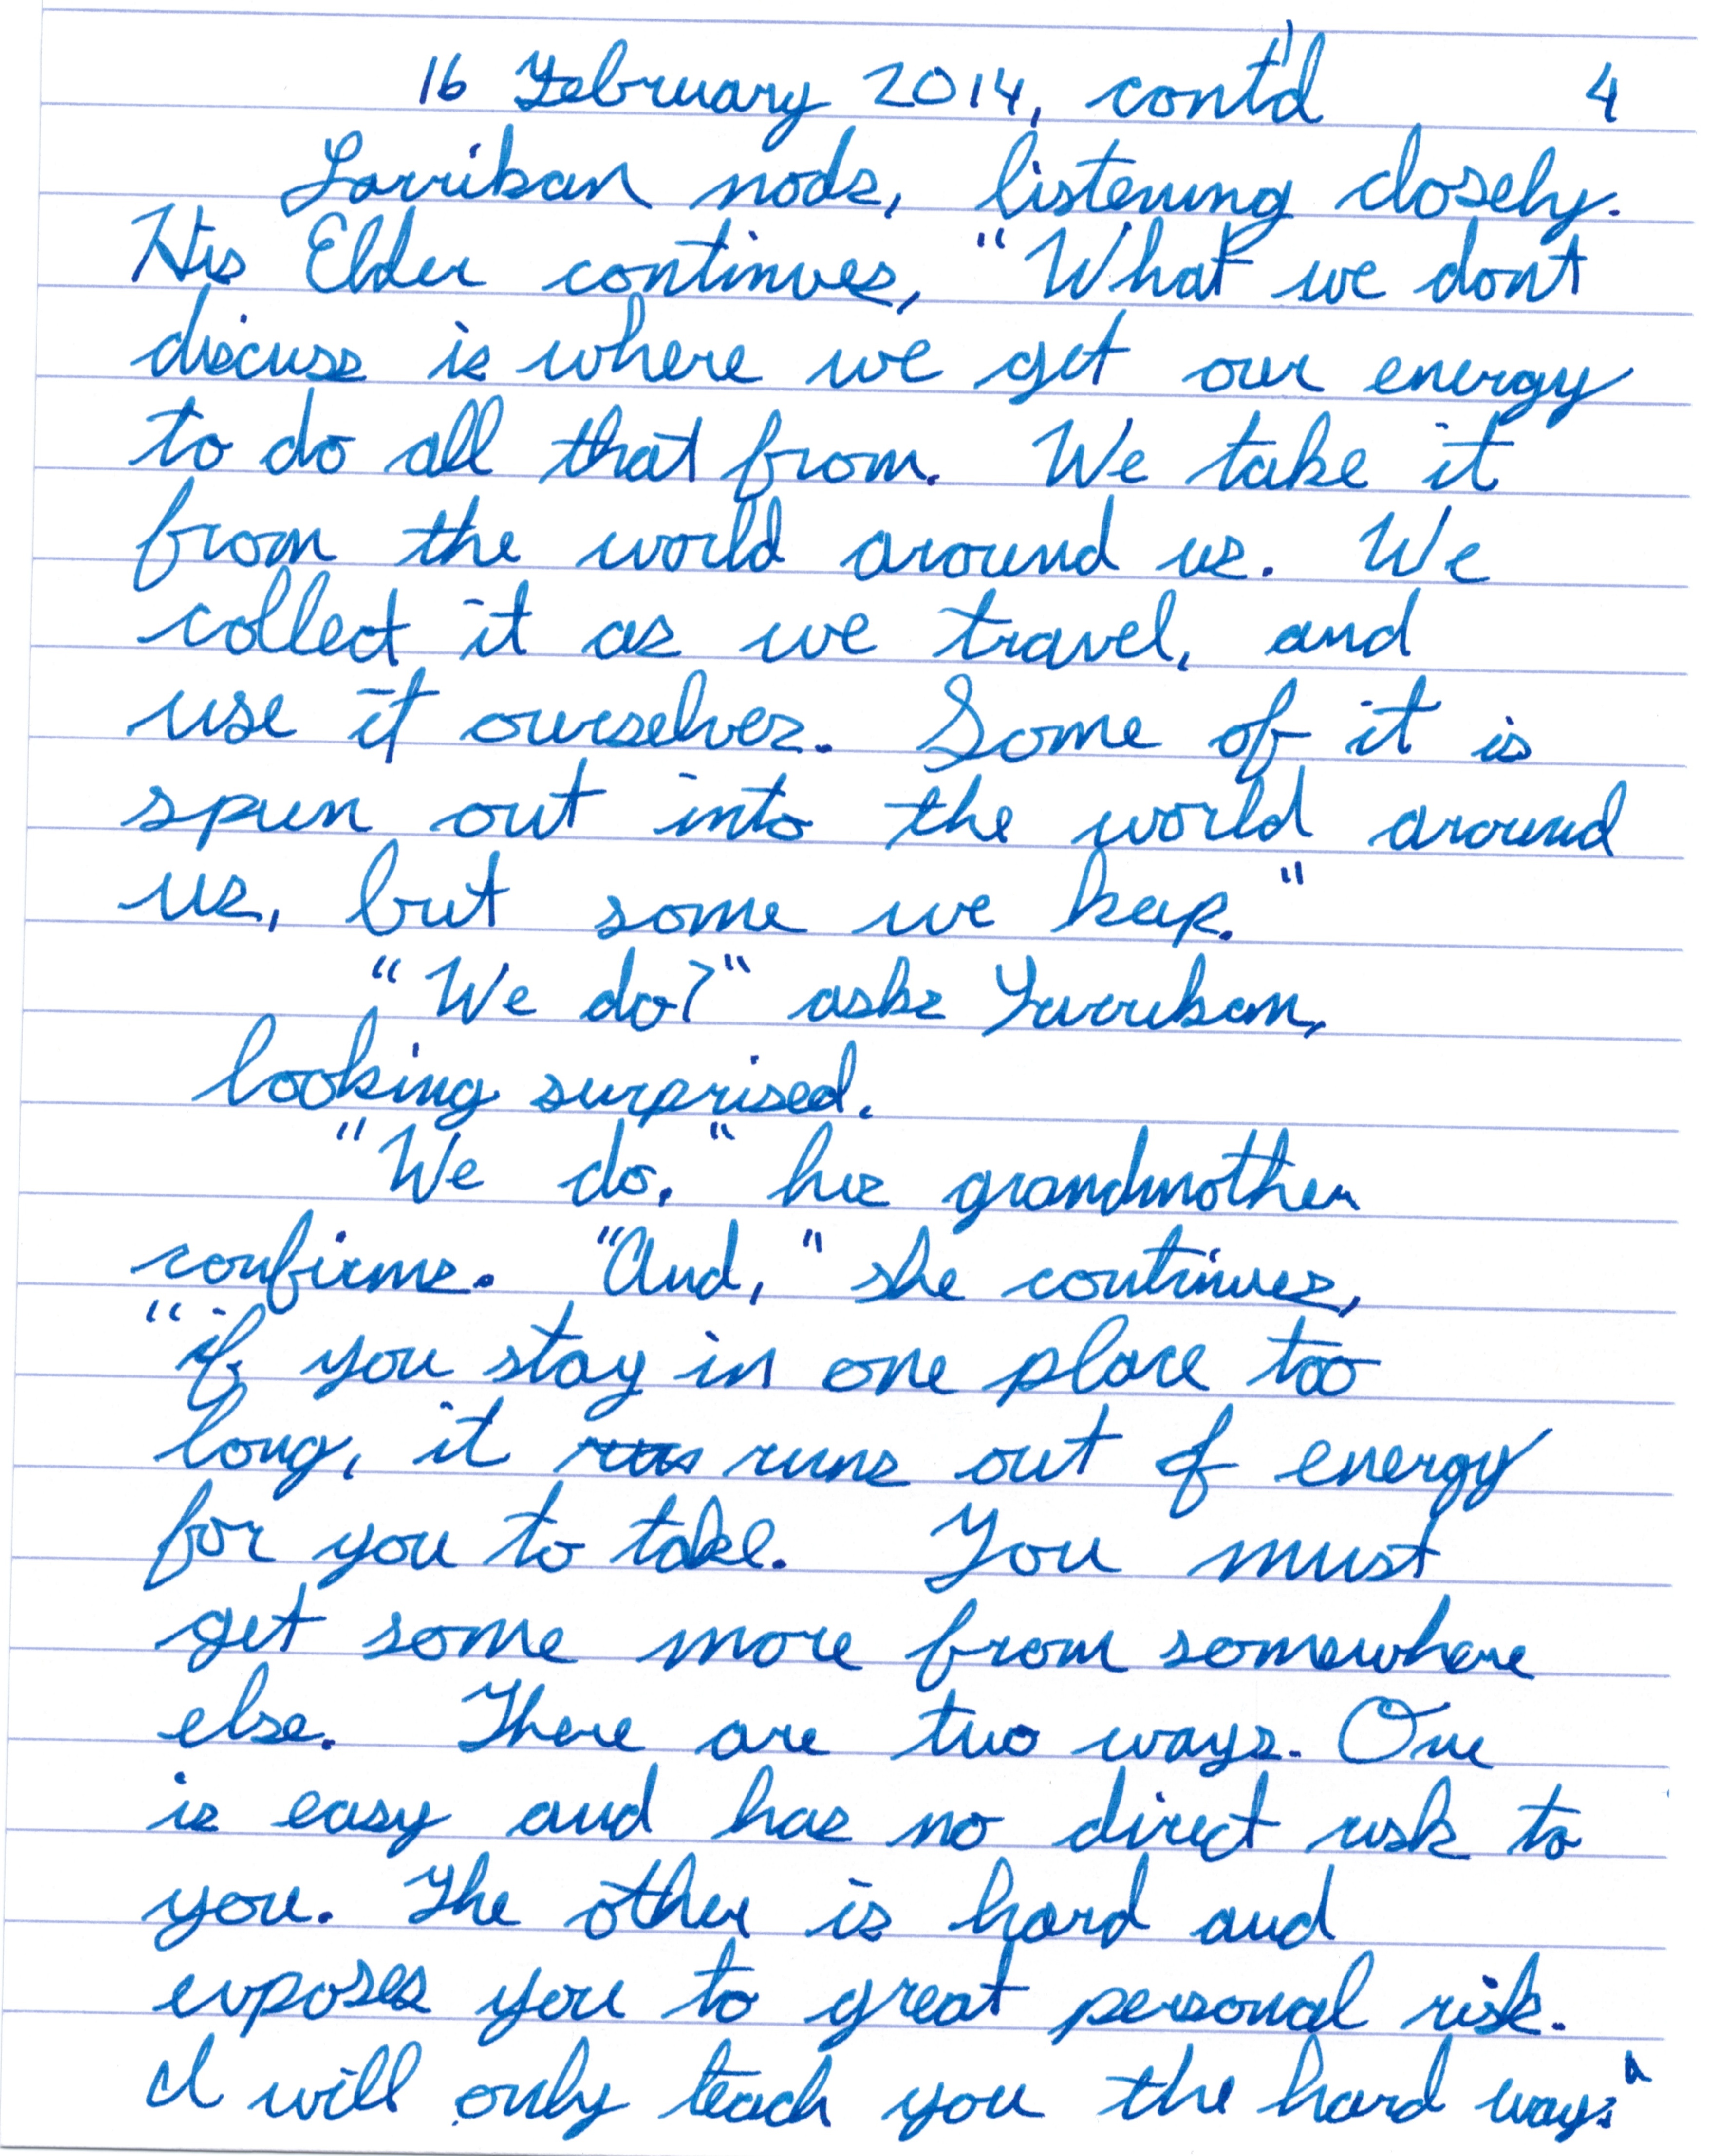 16 February 2014, cont'd 4
Larrikan nods, listening closely.
His Elder continues, "What we don't
discuss is where we get our energy
to do all that from. We take it
from the world around us. We
collect it as we travel, and
use it ourselves. Some of it is
spun out into the world around
us, but some we keep."
"We do?" asks Larrikan,
looking surprised.
"We do." his grandmother
confirms. "And," she continues,
"if you stay in one place too
long, it runs out of energy
for you to take. You must
get some more from somewhere
else. There are two ways. One
is easy and has no direct risk to
you. The other is hard and
exposes you to great personal risk.
I will only teach you the hard way."